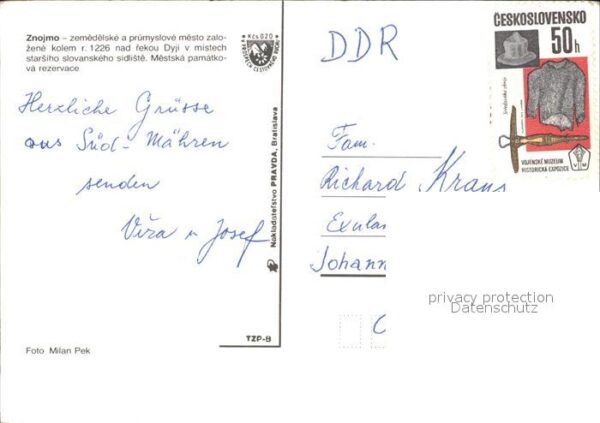 Znojmo – zemědělské a průmyslové město zalo-
žené kolem r. 1226 nad řekou Dyjí v místech
staršího slovanského sídliště. Městská památko-
vá rezervace
Kčs 0,20
Herzliche Grüsse
aus Süd-Mähren
senden
Víza u Josef
Foto Milan Pek
Nakladateľstvo PRAVDA, Bratislava
TZP-8
DDR
Fam.
Richard Kraus
Exulan
Johann
ČESKOSLOVENSKO
50h
VOJENSKÉ MUZEUM
HISTORICKÁ EXPOZICE
privacy protection
Datenschutz